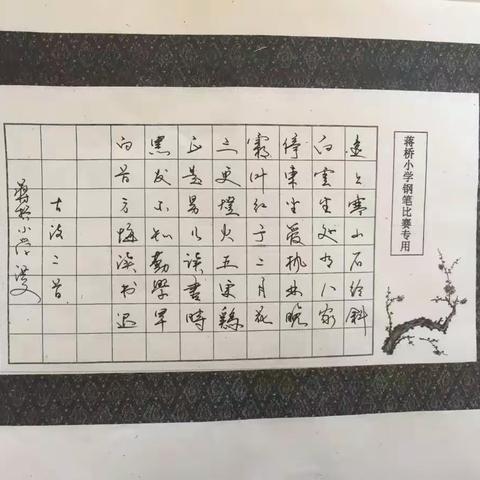 蒋桥小学钢笔比赛专用
遠上寒山石径斜
白雲生处有人家
停車坐爱枫林晚
霜叶红于二月花
三更燈火五更鷄
正是男儿读書時
黑发不知勤學早
白首方悔读书迟
古诗二首
蒋桥小学